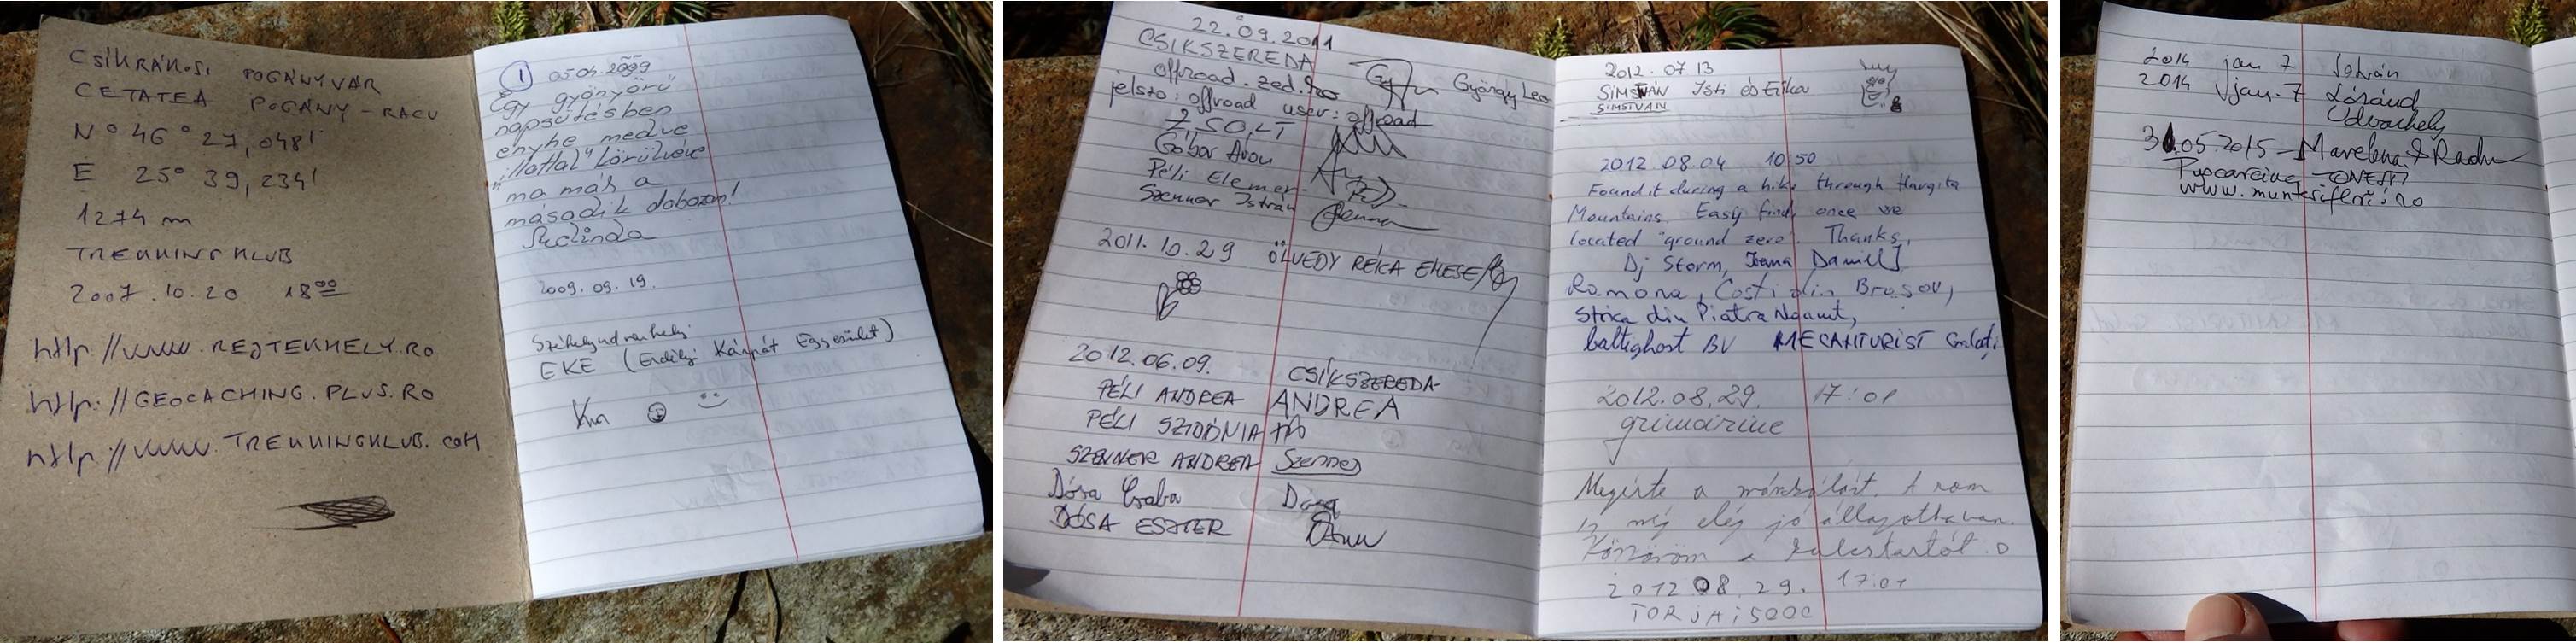 CSÍKRÁKOSI POGÁNYVÁR
CETATEA POGÁNY-RACU
N° 46° 27,048'
E 25° 39,234'
1274 m
TREKKINGKLUB
2007.10.20 18⁰⁰
http://www.REJTEKHELY.RO
http://GEOCACHING.PLUS.RO
http://www.TREKKINGKLUB.COM
1 05.04.2009
Egy gyönyörű
napsütésben
enyhe medve
"illattal" körülvéve
ma már a
második dobozom!
2009.09.19.
Székelyudvarhely
EKE (Erdélyi Kárpát Egyesület)
22.09.2011
CSIKSZEREDA
offroad.zed.ro György Leo
jelszo: offroad user: offroad
ZSOLT
Gábor Áron
Péli Elemér
Szenner István
2011.10.29 ÖLVEDY RÉKA EMESE
2012.06.09. CSÍKSZEREDA
PÉLI ANDREA ANDREA
PÉLI SZIDÓNIA
SZENNER ANDREA Szenner
Dósa Csaba Dósa
DÓSA ESZTER
2012.07 13
SIMSTVAN Isti és Erika
SIMSTVAN
2012.08.04 10:50
Found it during a hike through Hargita
Mountains. Easy find, once we
located "ground zero". Thanks,
Dj Storm, Ioana Daniil
Romona, Costi din Brasov,
Strica din Piatra Neamt,
baltighost BV MECANTURIST Galati
2012.08.29. 17:01
grimarime
Megérte a mászkálást. A rom
is még elég jó állapotban van.
Köszönöm a kulcstartót :D
2012 08.29. 17:01
TORJAI SOOC
2014 jan 7 István
2014 jan. 7 Lóránd
Udvarhely
31.05.2015 - Marelena & Radu
Puscarciuc - ONESTI
www.muntesiflori.ro